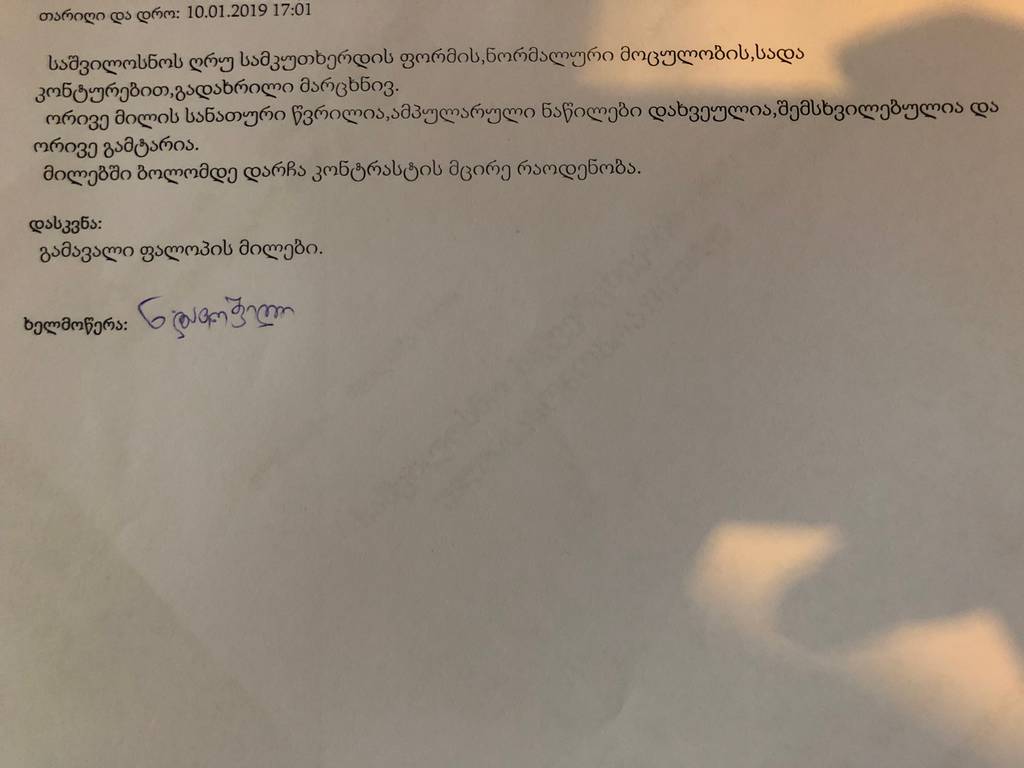 თარიღი და დრო: 10.01.2019 17:01
საშვილოსნოს ღრუ სამკუთხერდის ფორმის,ნორმალური მოცულობის,სადა
კონტურებით,გადახრილი მარცხნივ.
ორივე მილის სანათური წვრილია,ამპულარული ნაწილები დახვეულია,შემსხვილებულია და
ორივე გამტარია.
მილებში ბოლომდე დარჩა კონტრასტის მცირე რაოდენობა.
დასკვნა:
გამავალი ფალოპის მილები.
ხელმოწერა: